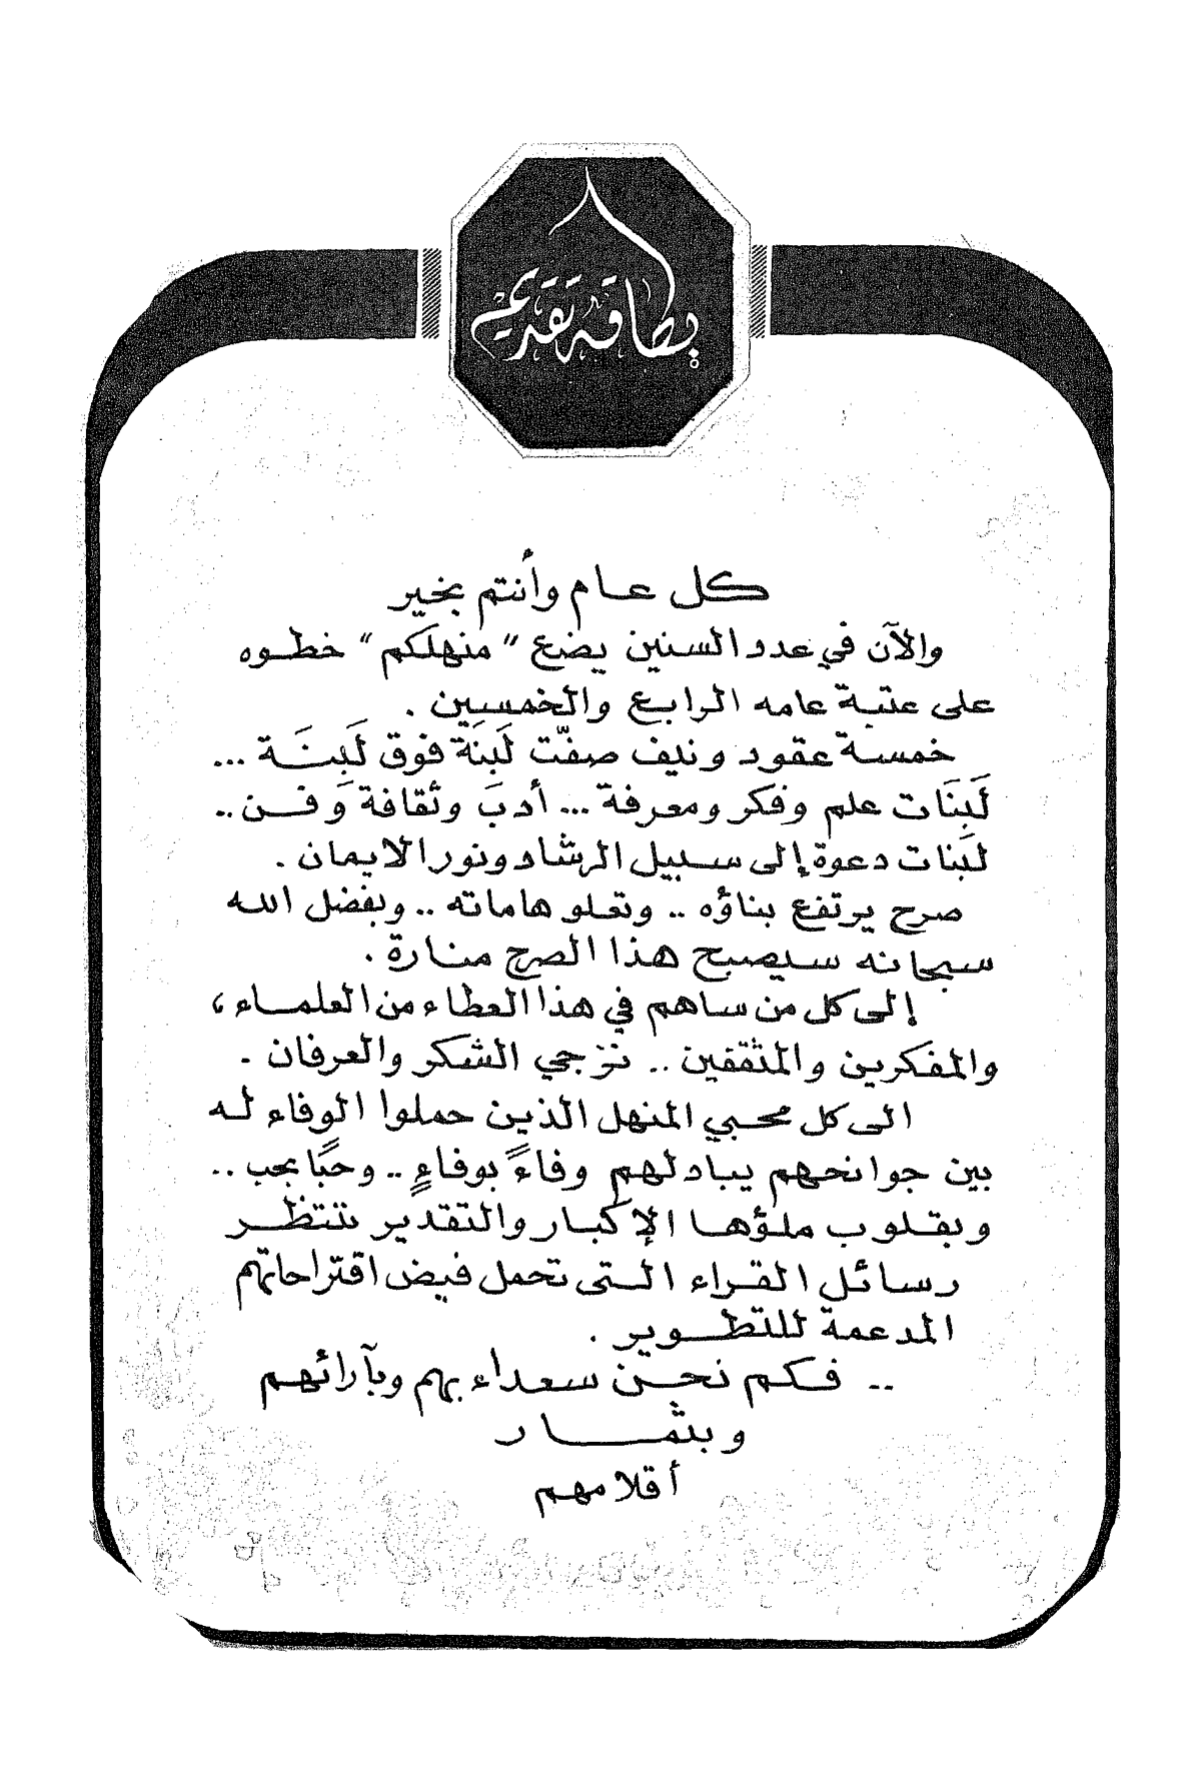 بطاقة تقديم
كل عام وأنتم بخير
والآن في عدد السنين يضع "منهلكم" خطوه
على عتبة عامه الرابع والخمسين .
خمسة عقود ونيف صفّت لَبِنَة فوق لَبِنَة ...
لَبِنَات علم وفكر ومعرفة ... أدب وثقافة وفن ..
لبنات دعوة إلى سبيل الرشاد ونور الايمان .
صرح يرتفع بناؤه .. وتعلو هاماته .. وبفضل الله
سبحانه سيصبح هذا الصرح منارة .
إلى كل من ساهم في هذا العطاء من العلماء ،
والمفكرين والمثقفين .. نزجي الشكر والعرفان .
الى كل محبي المنهل الذين حملوا الوفاء له
بين جوانحهم يبادلهم وفاءً بوفاءٍ .. وحبًا بحب ..
وبقلوب ملؤها الإكبار والتقدير ننتظر
رسائل القراء التى تحمل فيض اقتراحاتهم
المدعمة للتطوير .
.. فكم نحن سعداء بهم وبآرائهم
وبثمار
أقلامهم